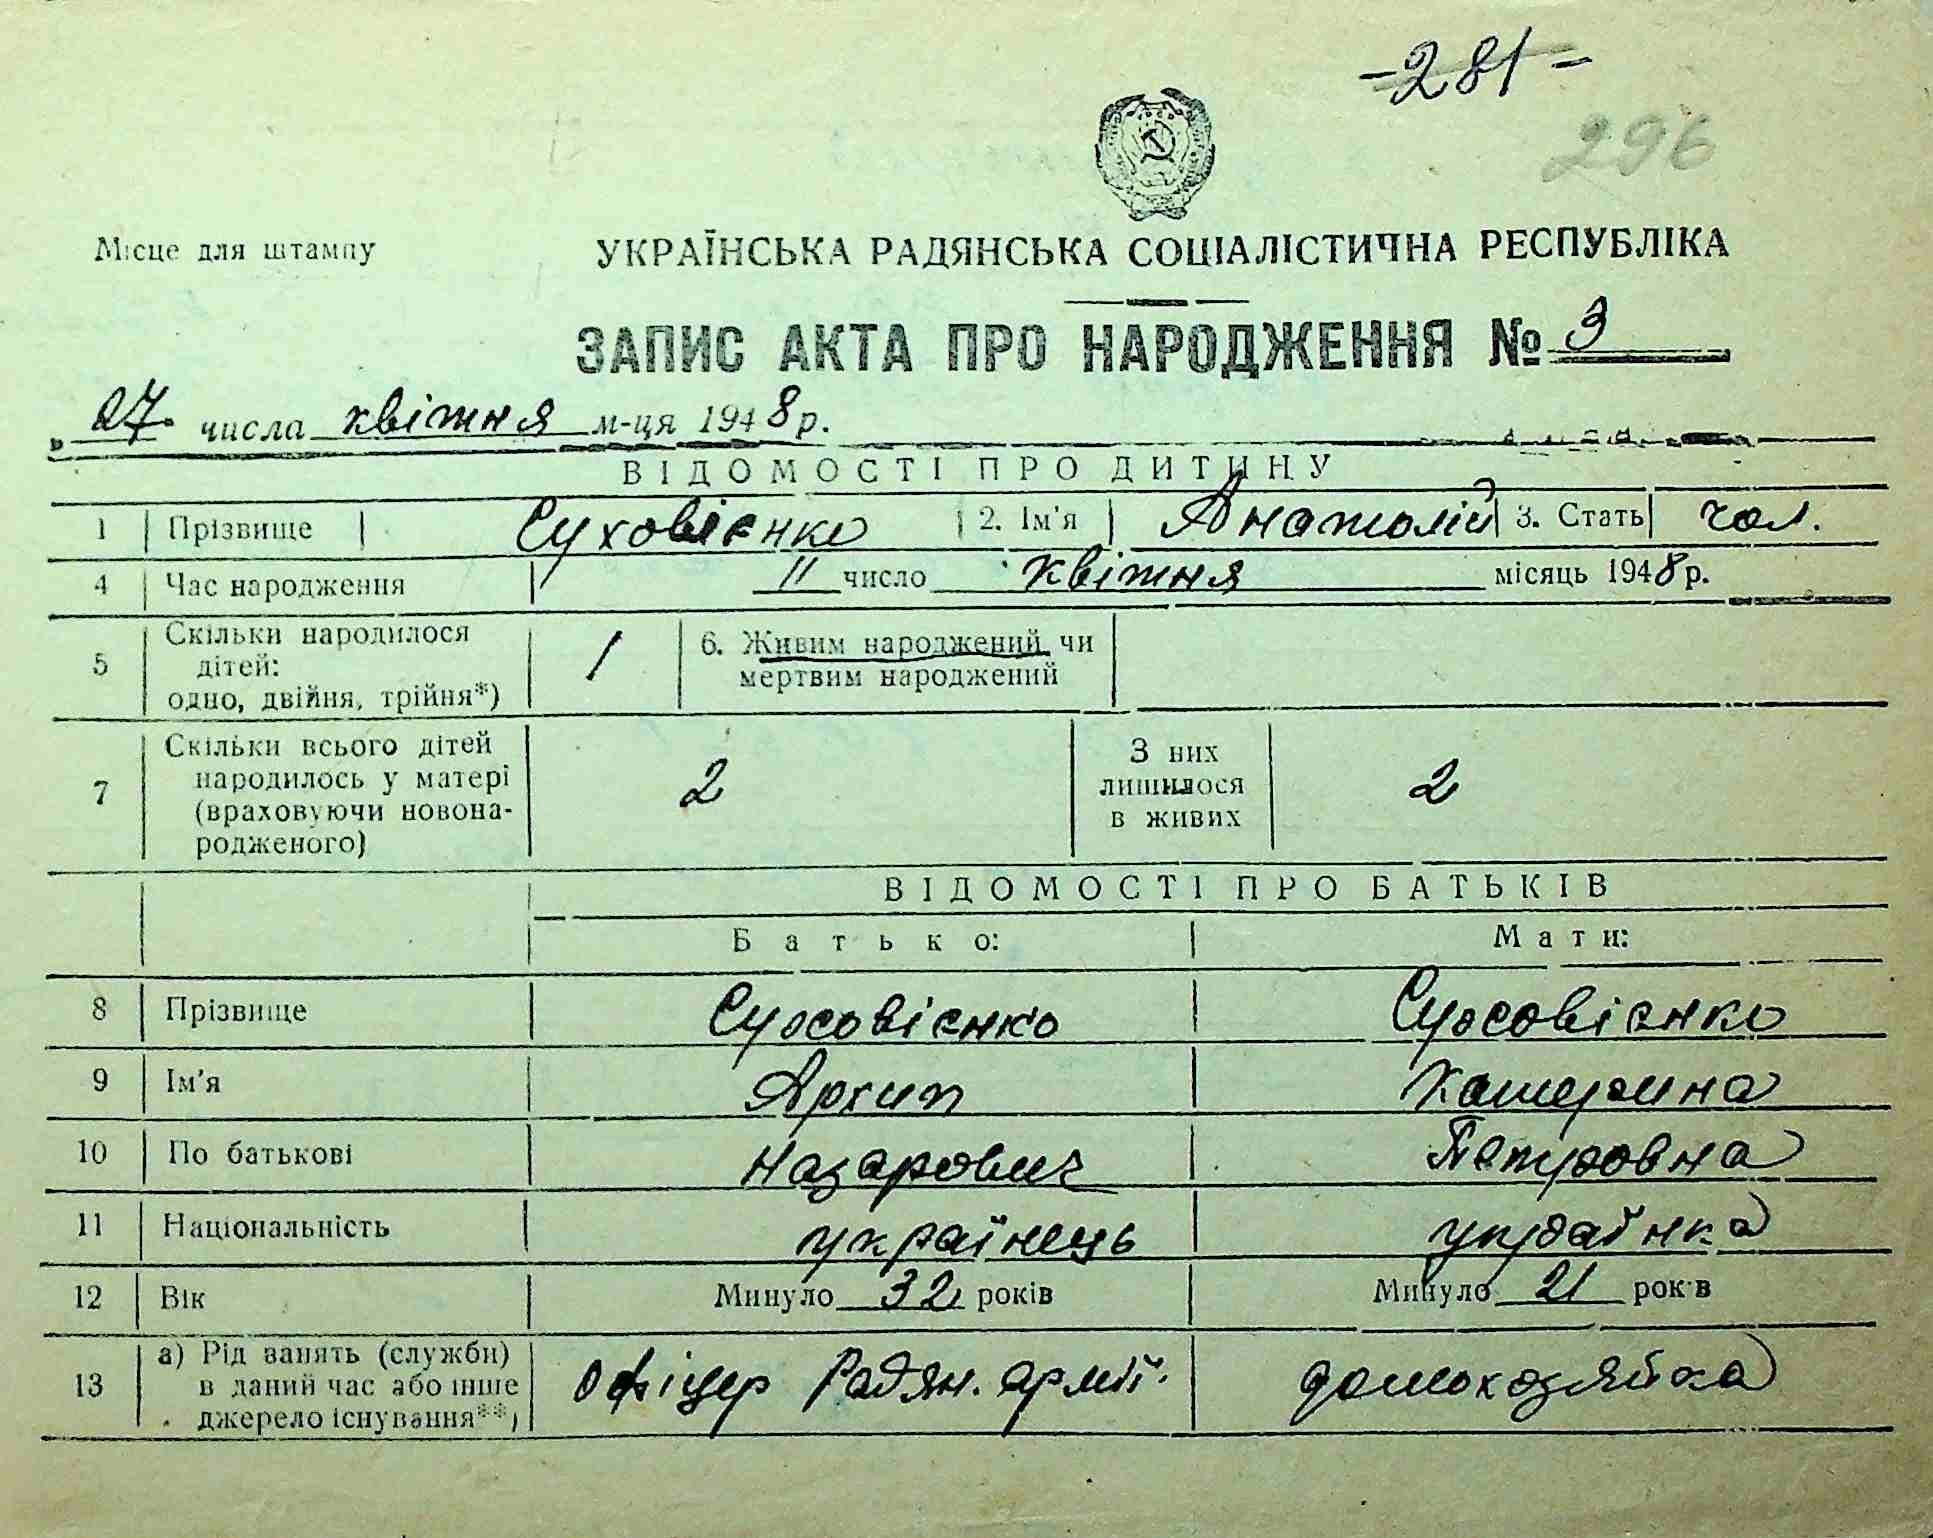 -281-
296
Місце для штампу
УКРАЇНСЬКА РАДЯНСЬКА СОЦІАЛІСТИЧНА РЕСПУБЛІКА
ЗАПИС АКТА ПРО НАРОДЖЕННЯ № 3
„ 27 числа квітня м-ця 1948 р.
ВІДОМОСТІ ПРО ДИТИНУ
1 Прізвище Суховієнко 2. Ім'я Анатолій 3. Стать чол.
4 Час народження 11 число квітня місяць 1948 р.
5 Скільки народилося
дітей:
одно, двійня, трійня*)
1
6. Живим народжений чи
мертвим народжений
7 Скільки всього дітей
народилось у матері
(враховуючи новона-
родженого)
2
З них
лишилося
в живих
2
ВІДОМОСТІ ПРО БАТЬКІВ
Батько: Мати:
8 Прізвище Суховієнко Суховієнко
9 Ім'я Архип Катерина
10 По батькові Назарович Петровна
11 Національність українець українка
12 Вік Минуло 32 років Минуло 21 років
13 а) Рід занять (служби)
в даний час або інше
джерело існування**)
Офіцер Радян. армії. домохозяйка